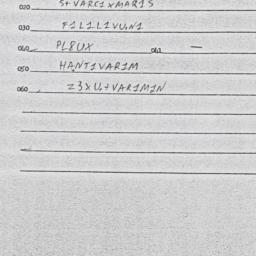 020 S+VARC1XMAR1S
030 F1L1L1VUN1
040 PL8UX 042 —
050 HANT1VAR1M
060 Z3XU+VAR1M1N